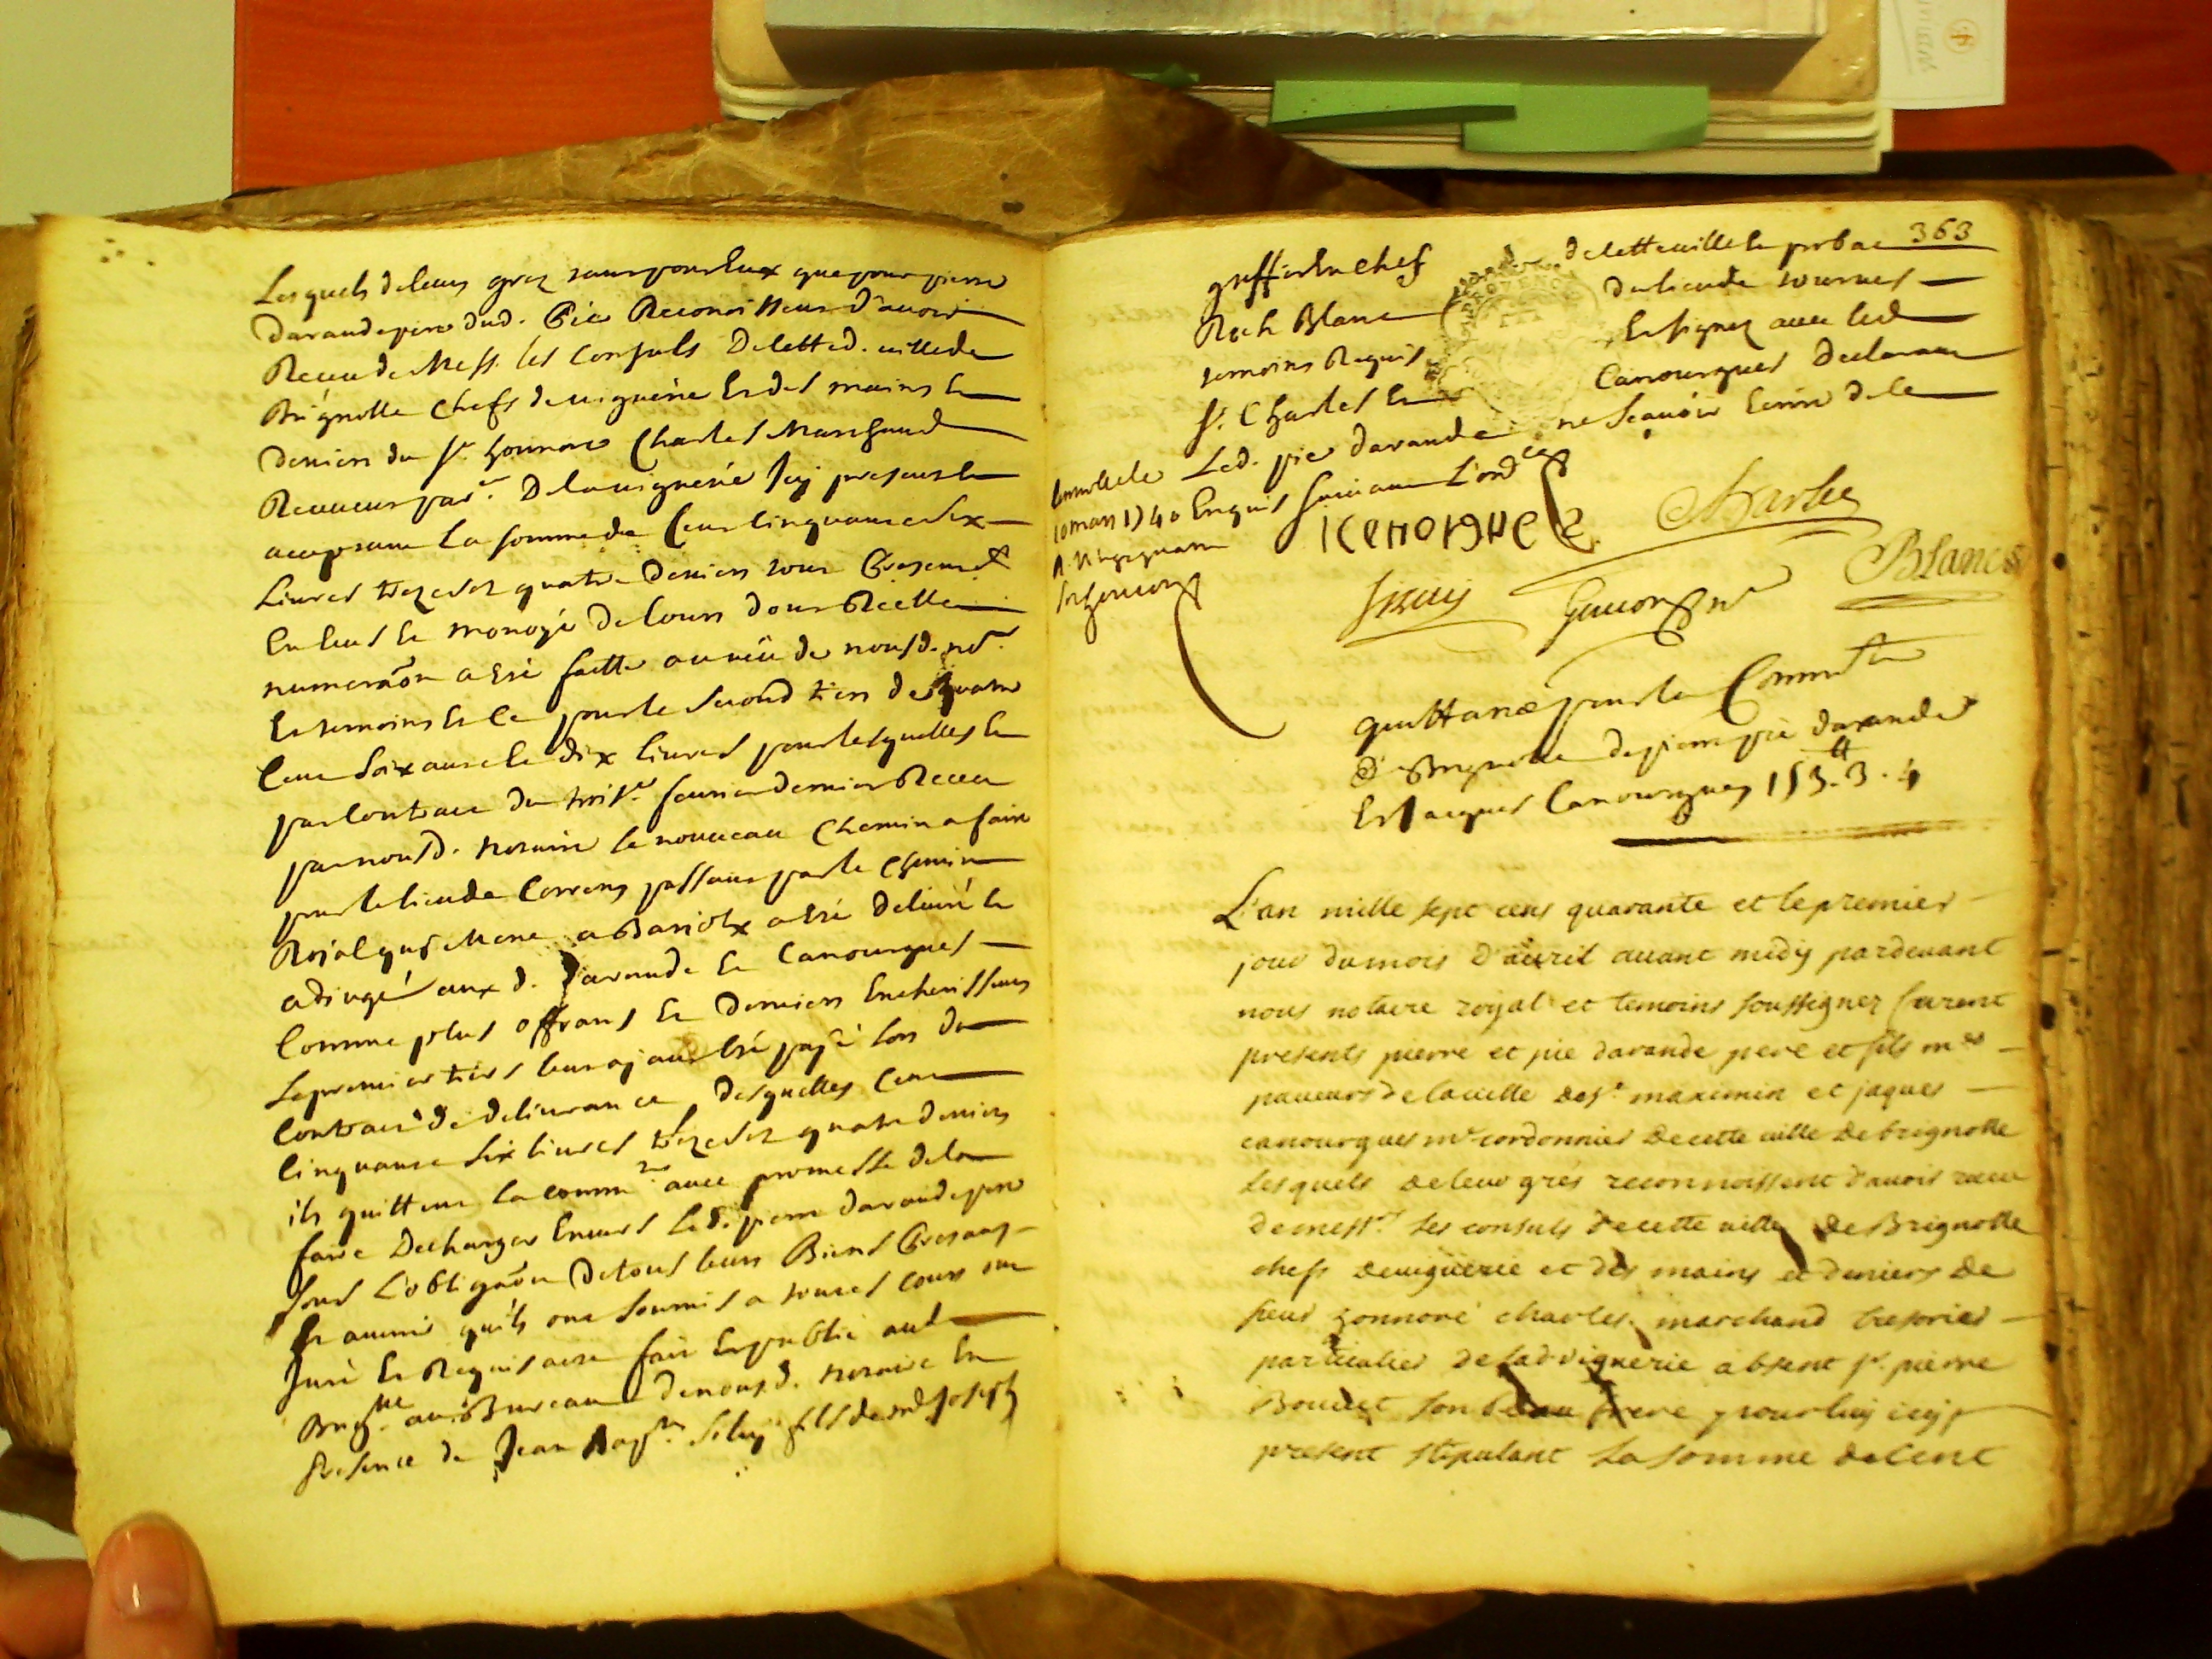 Lesquels de leurs grez tant pour Eux que pour pierre
Daraude pere dud. Pie Reconoissent D'avoir
Receu de Mess. les Consuls De cette d. ville de
Brignolle Chefs de viguerie Et des mains Et
Deniers du Sr. honnoré Charles Marchand
Receveur par.er De la viguerie Icy present Et
acceptant La somme de Cent Cinquante six
Livres treze sols quatre Deniers tout presentemt
En Ecus Et monoye De Cours dont Reelle
numeraõn a Esté faitte au veu de nousd. nore
Et temoins Et Ce pour le Second tiers de quatre
Cent Soixante Et dix livres pour lesquelles Et
par Contract du trois.e fevrier dernier Receu
par nousd. notaire le nouveau Chemin a faire
pour le lieu de Correns passant par le Chemin
Royal qui Mene a Barjolx a Esté delivré Et
adjugé aux d. Daraude Et Canourgues
Comme plus offrans Et Derniers Encherisseurs
Le premier tiers leur ayant Esté payé lors du
Contract de delivrance, desquelles Cent
Cinquante six livres treze sols quatre deniers
ils quittent la comm.té avec promesse de la
faire Decharger Envers Led. pierre daraude pere
sous L'obligaõn De tous leurs Biens presans
Et avenir quils ont soumis a toutes Cours Et
Juré Et Requis acte fait Et publié aud.
Brig.lle au Bureau de nousd. notaire En
presence de Jean Bap.te Silvy fils de me Joseph
363
greffier En chef de cette ville Et probac
Roch Blanc du lieu de tourves
temoins Requis Et signez avec led.
Sr. Charles Et Canourgues Declarant
Led. pie daraude ne Scavoir Ecrire de ce
Enquis suivant L'ord.ce
Controlle
10 mars 1740
Charles
Blanc
Silvy
quittance pour la Comm.té
de Brignolle de pierre pie daraude
Et Jacques Canourgues 153 tt 3 . 4
L'an mille sept cens quarante et le premier
jour du mois D'avril avant midy pardevant
nous notaire royal et temoins soussignez furent
presents pierre et pie daraude pere et fils mes
paveurs de la ville de St. maximin et jaques
canourgues me cordonnier De cette ville De brignolle
Lesquels De leur grés reconnoissent d'avoir receu
de mess.rs les consuls de cette ville de Brignolle
chefs de viguerie et des mains et deniers De
sieur honnoré charles marchand tresorier
particulier de lad viguerie absent sr. pierre
Boudet son beau frere pour luy icy
present stipulant La somme de Cent